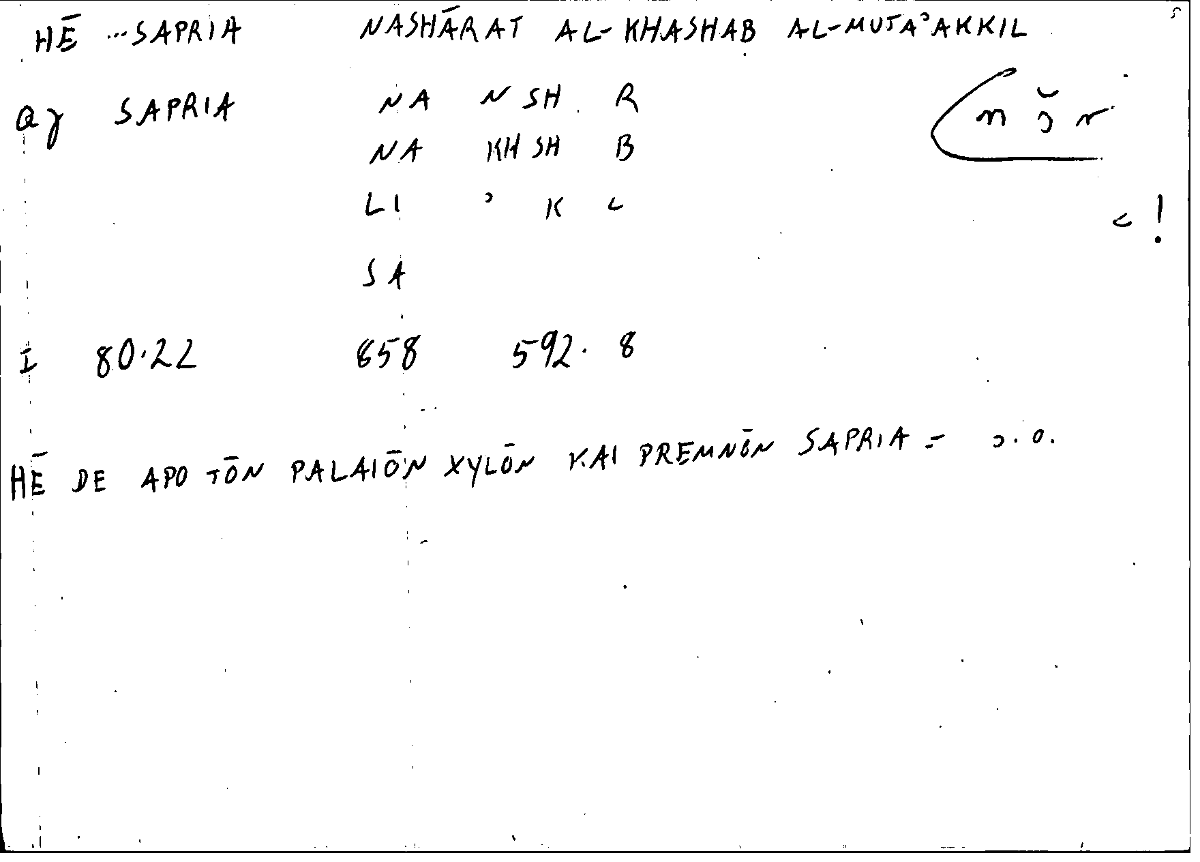 HĒ ...SAPRIA NASHĀRAT AL-KHASHAB AL-MUTAʾAKKIL
SAPRIA NA N SH R
n š r
NA KH SH B
LI ʾ K L
!
SA
I 80.22 658 592. 8
HĒ DE APO TŌN PALAIŌN XYLŌN KAI PREMNŌN SAPRIA =